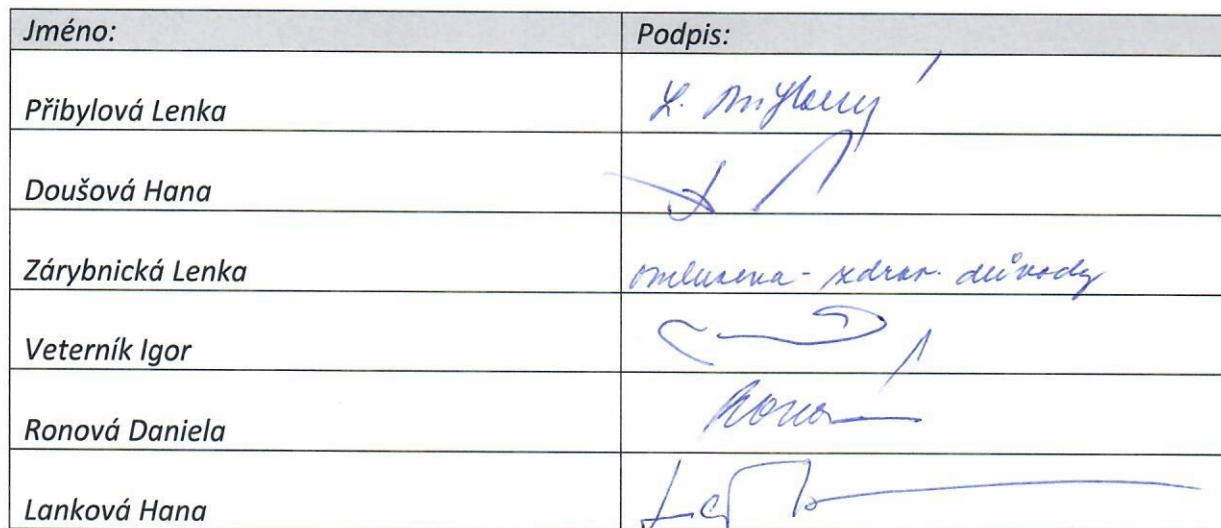 Jméno: Podpis:
Přibylová Lenka L. Přibylová
Doušová Hana
Zárybnická Lenka omluvena - zdrav. důvody
Veterník Igor
Ronová Daniela
Lanková Hana